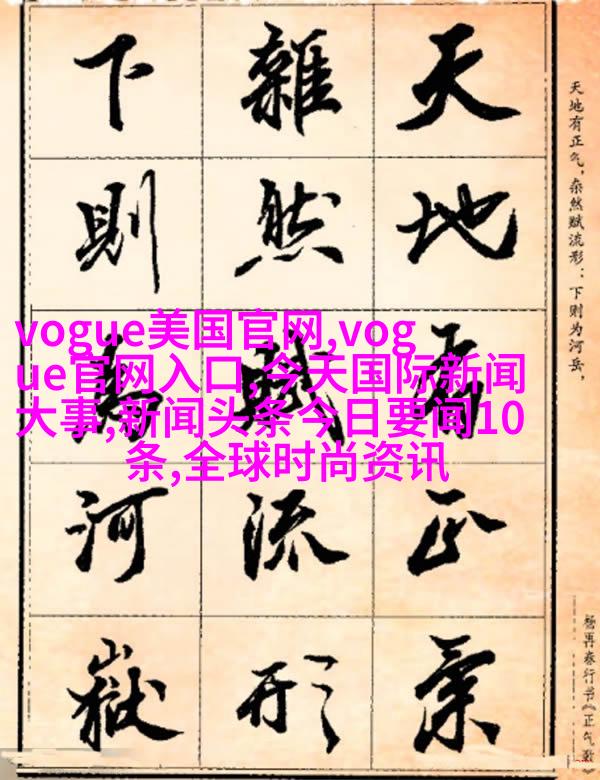 天地有正氣
雜然賦流形
下則為河嶽
天地有正气，杂然赋流形：下则为河岳，
杨再春行书《正气歌》
vogue美国官网,vog
ue官网入口,今天国际新闻
大事,新闻头条今日要闻10
条,全球时尚资讯